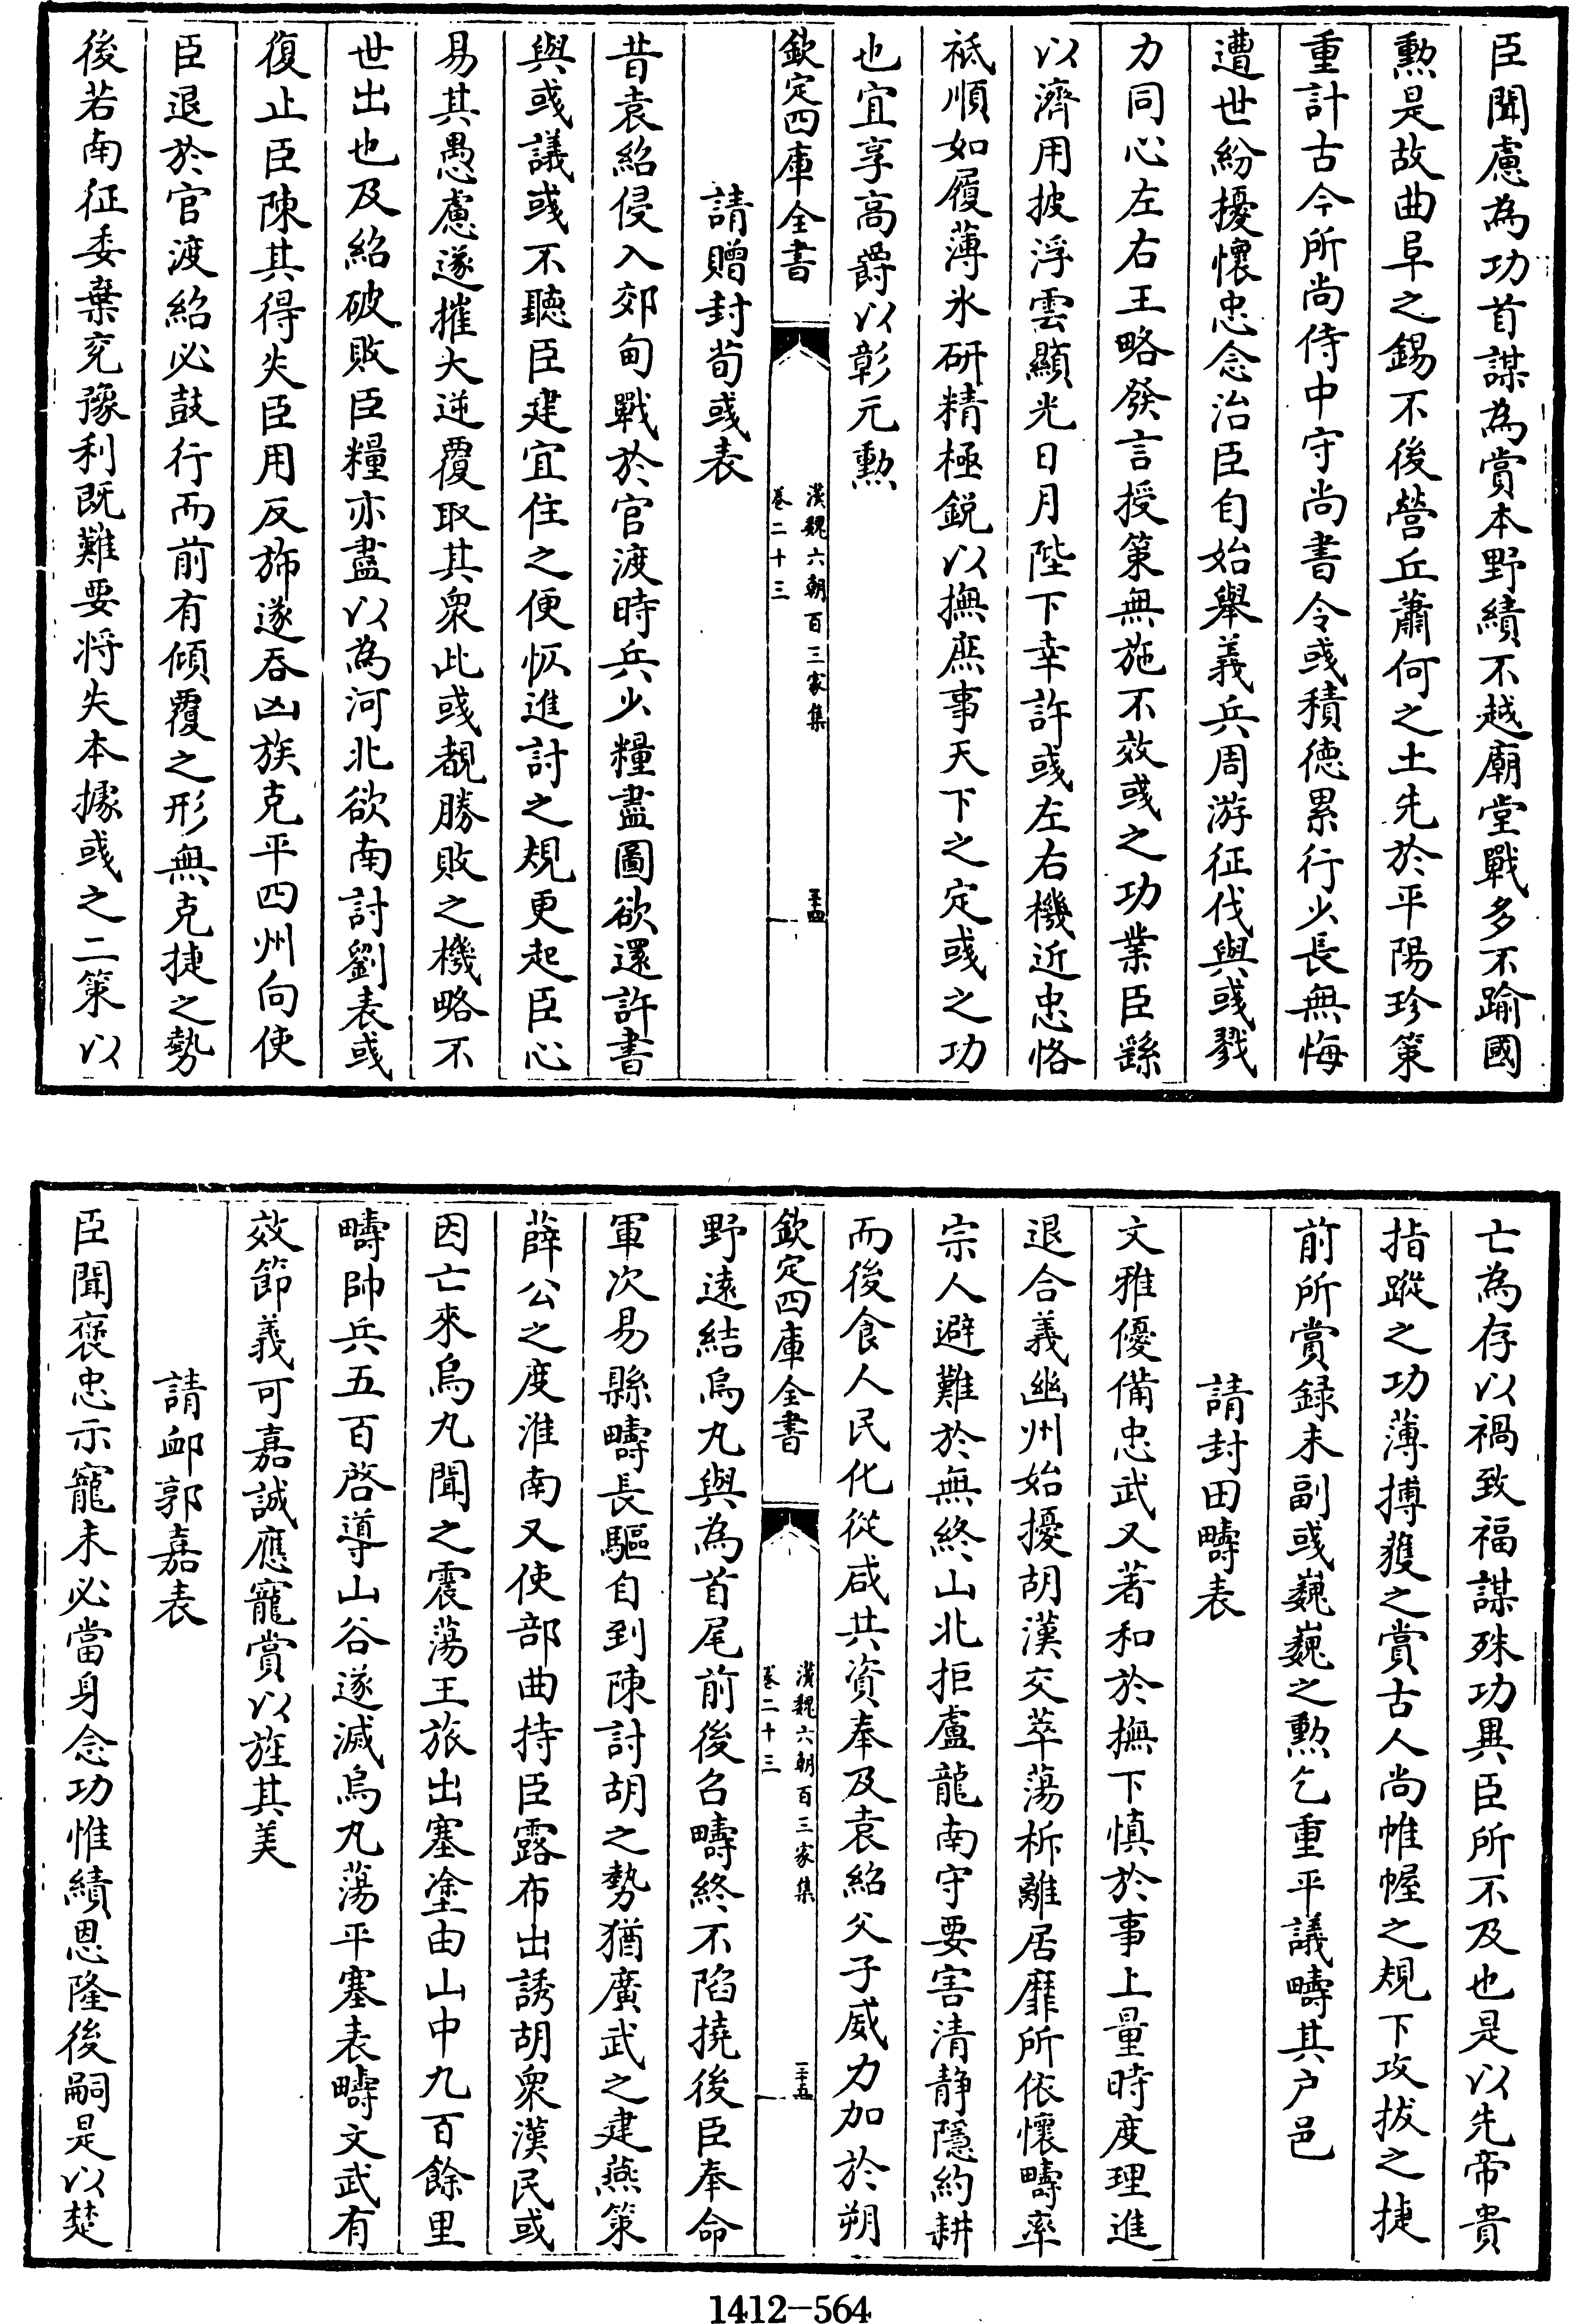 臣聞慮為功首謀為賞本野績不越廟堂戰多不踰國
勲是故曲阜之錫不後營丘蕭何之土先於平陽珍策
重計古今所尚侍中守尚書令彧積德累行少長無悔
遭世紛擾懷忠念治臣自始舉義兵周游征伐與彧戮
力同心左右王略發言授策無施不效彧之功業臣繇
以濟用披浮雲顯光日月陛下幸許彧左右機近忠恪
祗順如履薄氷研精極銳以撫庶事天下之定彧之功
也宜享高爵以彰元勲
欽定四庫全書
漢魏六朝百三家集
卷二十三
二十四
請贈封荀彧表
昔袁紹侵入郊甸戰於官渡時兵少糧盡圖欲還許書
與彧議彧不聽臣建宜住之便恢進討之規更起臣心
易其愚慮遂摧大逆覆取其衆此彧覩勝敗之機略不
世出也及紹破敗臣糧亦盡以為河北欲南討劉表彧
復止臣陳其得失臣用反斾遂吞凶族克平四州向使
臣退於官渡紹必鼓行而前有傾覆之形無克捷之勢
後若南征委棄兖豫利既難要將失本據彧之二策以
亡為存以禍致福謀殊功異臣所不及也是以先帝貴
指蹤之功薄搏獲之賞古人尚帷幄之規下攻拔之捷
前所賞録未副彧巍巍之勲乞重平議疇其户邑
請封田疇表
文雅優備忠武又著和於撫下慎於事上量時度理進
退合義幽州始擾胡漢交萃蕩析離居靡所依懷疇率
宗人避難於無終山北拒盧龍南守要害清静隱約耕
而後食人民化從咸共資奉及袁紹父子威力加於朔
欽定四庫全書
漢魏六朝百三家集
卷二十三
二十五
野遠結烏丸與為首尾前後召疇終不陷撓後臣奉命
軍次易縣疇長驅自到陳討胡之勢猶廣武之建燕策
薛公之度淮南又使部曲持臣露布出誘胡衆漢民或
因亡來烏丸聞之震蕩王旅出塞塗由山中九百餘里
疇帥兵五百啓導山谷遂滅烏丸蕩平塞表疇文武有
效節義可嘉誠應寵賞以旌其美
請卹郭嘉表
臣聞褒忠示寵未必當身念功惟績恩隆後嗣是以楚
1412—564